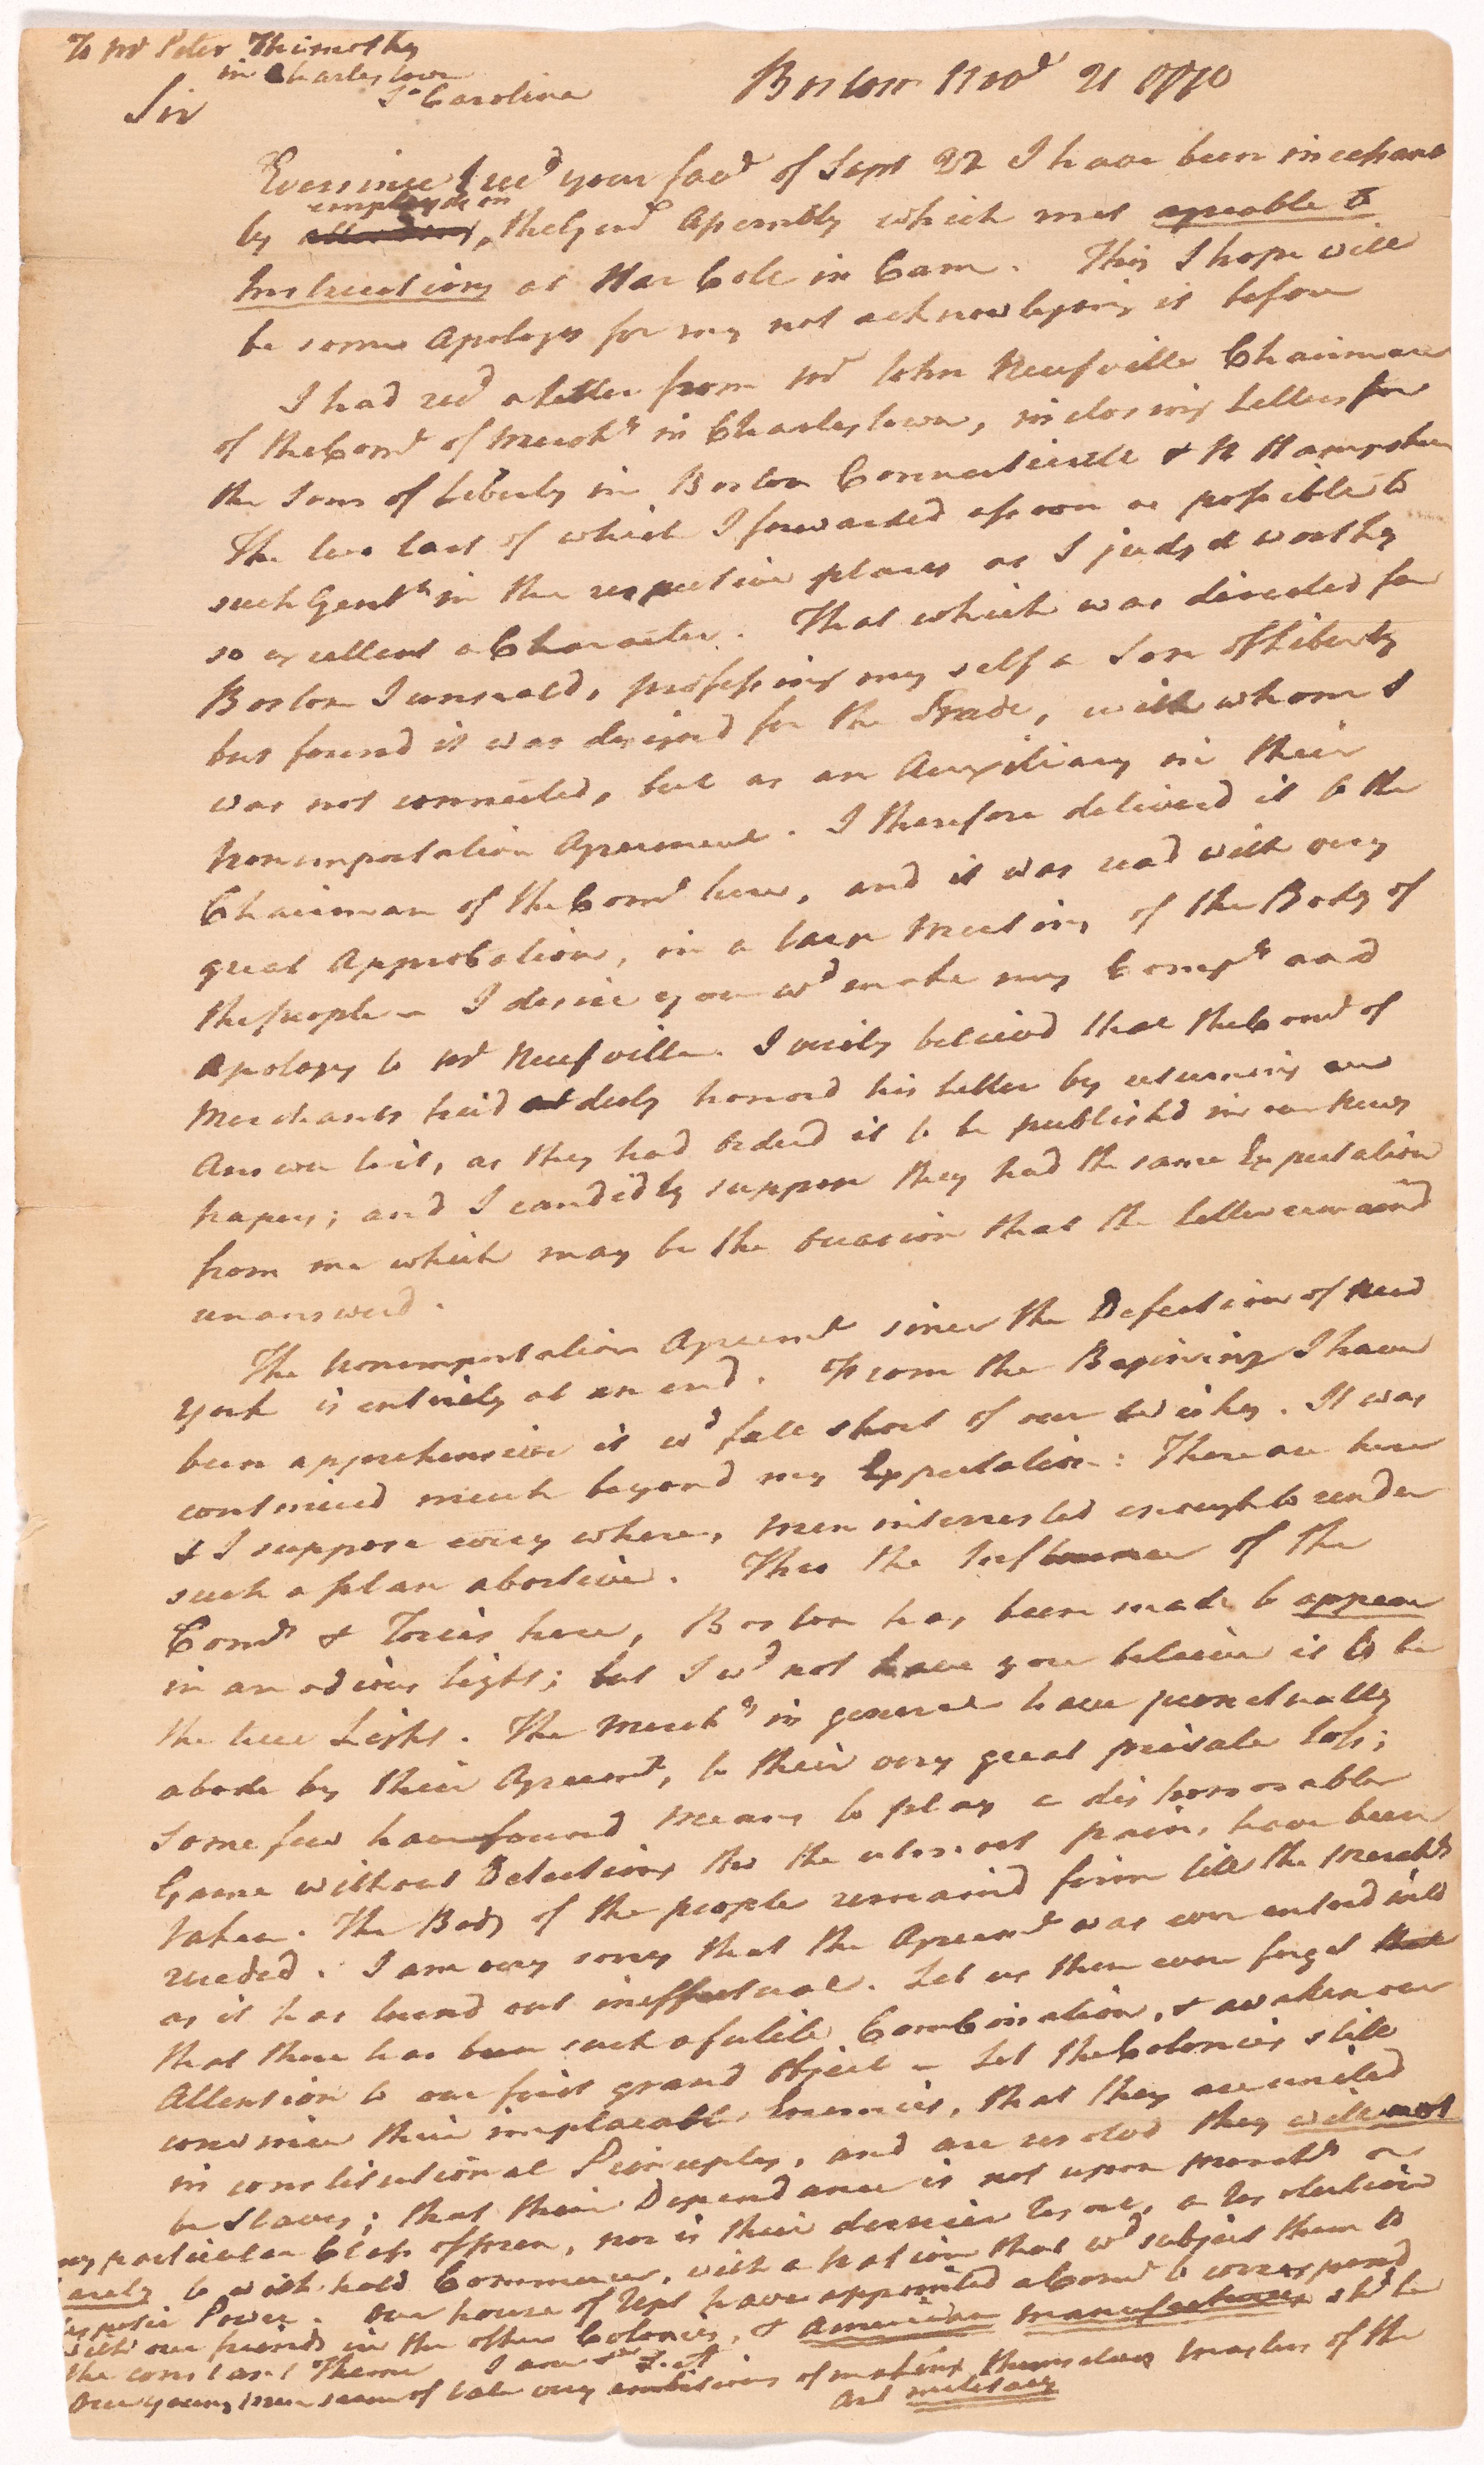 To Mr Peter Thimothy
in Charlestown
So Carolina
Boston Novr 21 1770
Sir
Ever since I recd your favr of Sept
I have been
employd on
by the Genl Assembly which met agreable to
Instructions at Har Colle in Cam. This I hope will
be some Apology for my not acknowledging it before
I had recd a letter from Mr John Neufville Chairman
of the Come of Mercht in Charlestown, inclosing Letters for
the Sons of Liberty in Boston Connecticutt & N Hampshire
The two last of which I forwarded as soon as possible to
such Gentn in the respective places as I judgd worthy
so excellent a Character. That which was directed for
Boston I unseald, professing my self a Son of Liberty
but found it was designd for the Trade, with whom I
was not connected, but as an Auxiliary in their
Nonimportation Agreement. I therefore deliverd it to the
Chairman of the Come here, and it was read with very
great Approbation, in a large Meeting of the Body of
the people - I desire you wd make my Compts and
Apology to Mr Neufville. I verily believd that the Come of
Merchants had duly honord his Letter by returning an
Answer to it, as they had orderd it to be publishd in our News
papers; and I candidly suppose they had the same Expectation
from me which may be the occasion that the letter remaind
unanswerd.
The nonimportation Agreemt since the Defection of New
York is entirely at an end. From the Beginning I have
been apprehensive it wd fall short of our Wishes. It was
continued much beyond my Expectation: There are here
& I suppose every where, men interrested enough to render
such a plan abortive. Thro the Influence of the
Comrs & Tories here, Boston has been made to appear
in an odious light; but I wd not have you believe it to be
the true Light. The Merchts in general have punctually
abode by their Agreemt, to their very great private loss;
Some few have found means to play a dishonorable
Game without Detection, tho the utmost pains have been
taken. The Body of the people remaind firm till the Merchts
receded. I am very sorry that the Agreemt was ever enterd into
as it has turnd out ineffectual. Let us then ever forget
that there has been such a futile Combination, & awaken our
Attention to our first grand object - Let the Colonies still
convince their implacable Enemies, that they are united
in constitutional Principles, and are resolvd they will not
be Slaves; that their Dependance is not upon Merchts or
any particular Class of men, nor is their dernier resort, a resolution
barely to with hold Commerce, with a nation that wd subject them to
despotic Power. Our house of Reps have appointed a Come to correspond
with our friends in the other Colonies, & American Manufactures shd be
the constant Theme I am Sr
Our young men seem of late very ambitious of making themselves masters of the
Art military